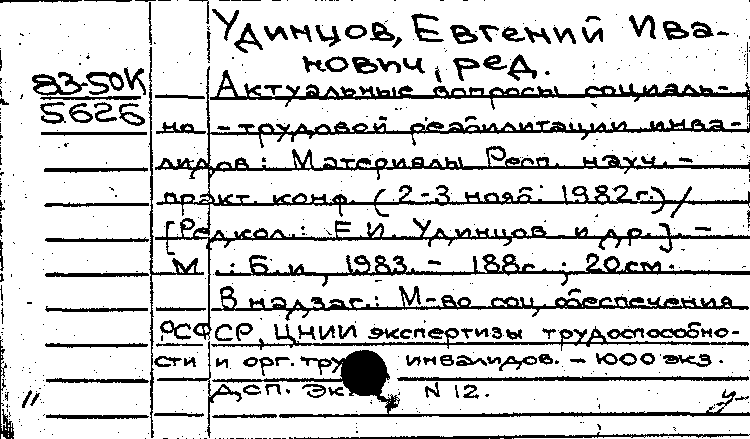 Удинцов, Евгений Ива-
нович, ред.
83-50К
5626
Актуальные вопросы социаль-
но-трудовой реабилитации инва-
лидов: Материалы Респ. науч.-
практ. конф. (2-3 нояб. 1982г.)/
[Редкол.: Е.И. Удинцов и др.]. -
М.: Б.и., 1983. - 188с.; 20см.
В надзаг.: М-во соц. обеспечения
РСФСР, ЦНИИ экспертизы трудоспособно-
сти и орг. тру инвалидов. - 1000 экз.
ДСП. Эк. N 12.
У-